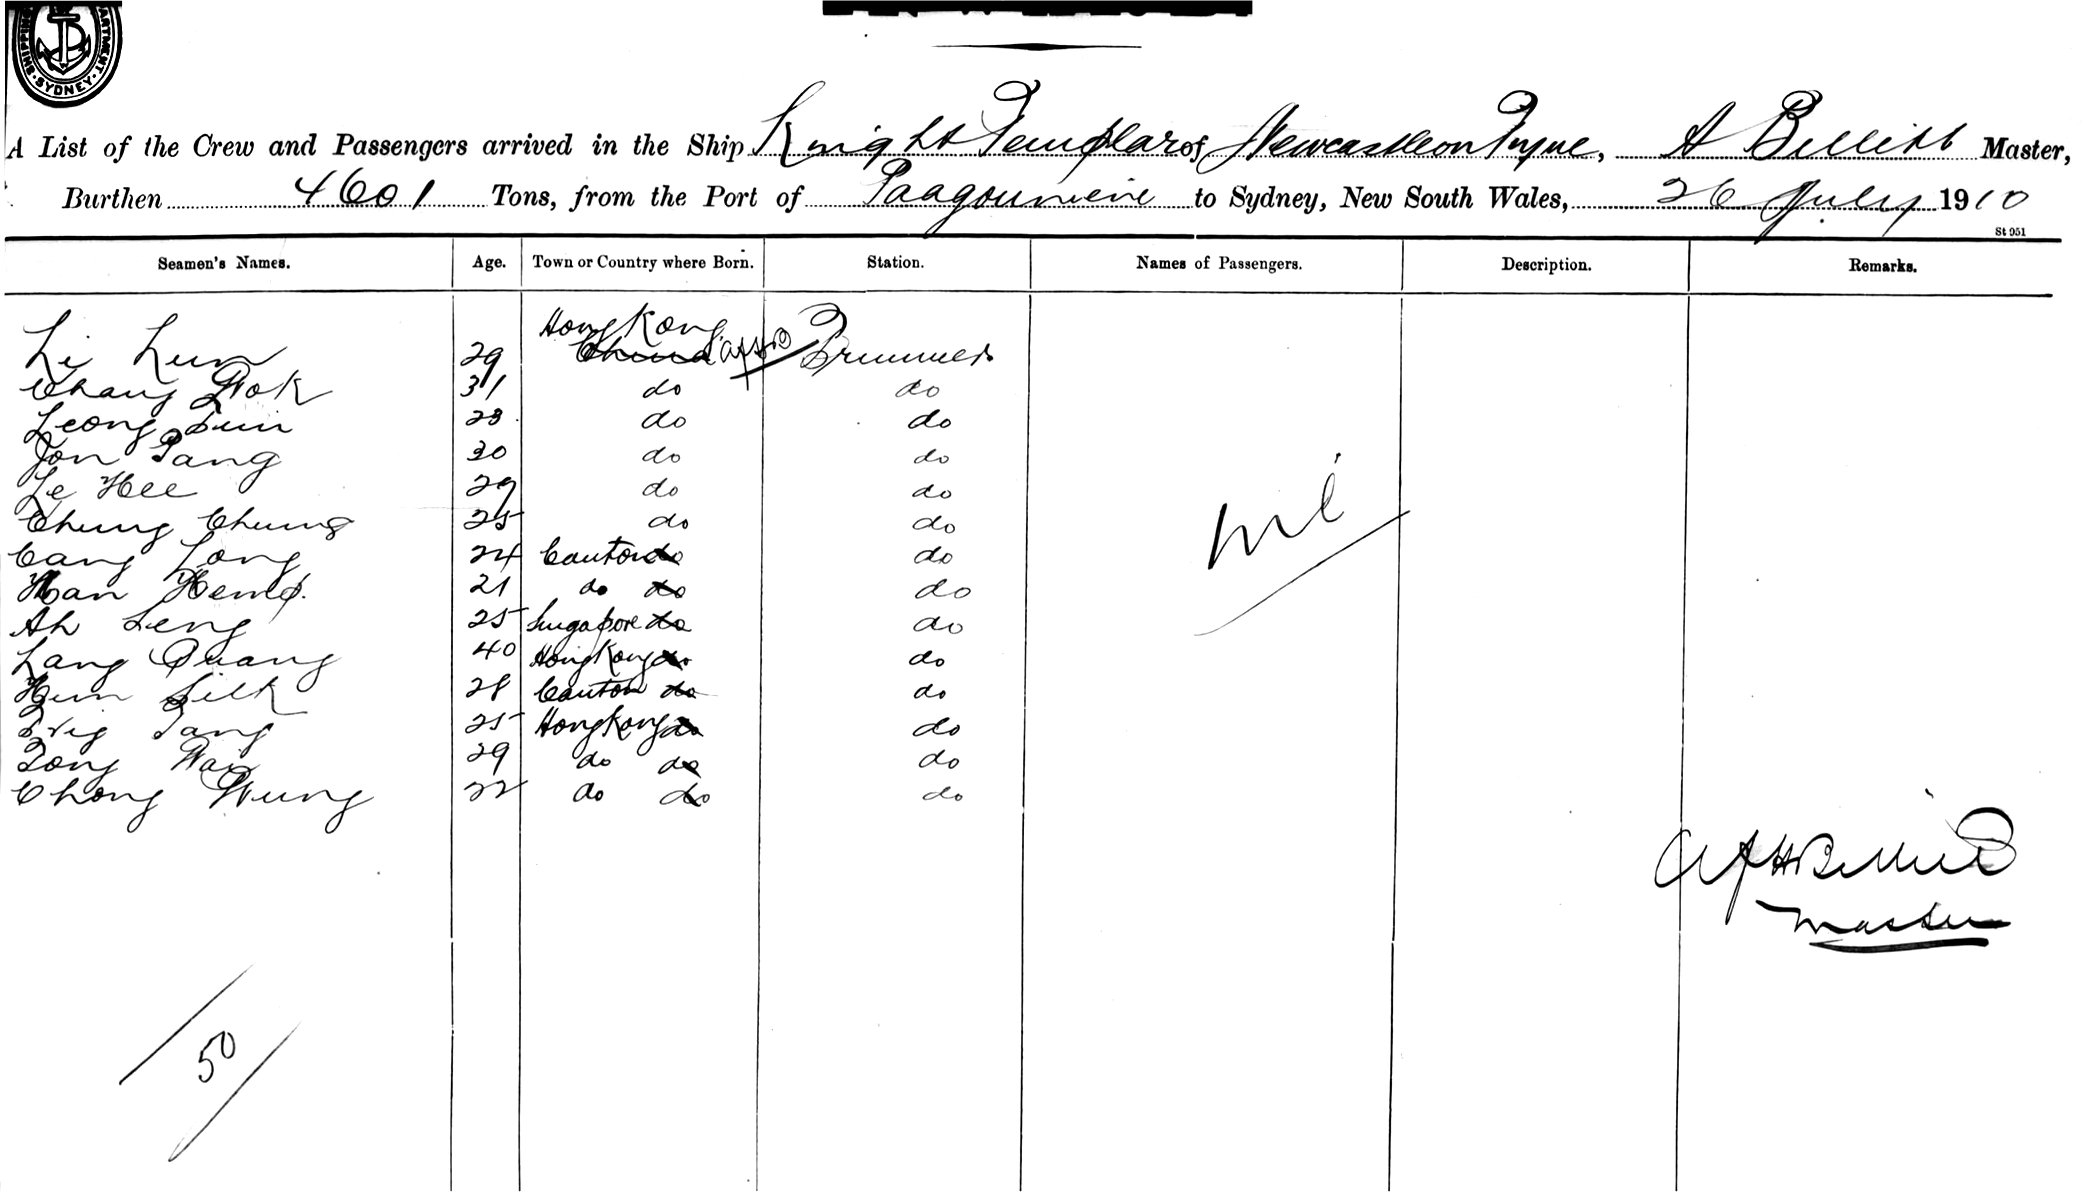 SHIPPING DEPARTMENT. SYDNEY
A List of the Crew and Passengers arrived in the Ship Knight Templar of Newcastle on Tyne, A Billitt Master,
Burthen 4601 Tons, from the Port of Paagoumene to Sydney, New South Wales, 26 July 1910
St 951
Seamen's Names. Age. Town or Country where Born. Station. Names of Passengers. Description. Remarks.
Hong Kong
Li Lum 29 China Trimmer
Chang Wok 31 do do
Leong Sun 23 do do
Jon Pang 30 do do
Le Hee 29 do do
Chung Chung 25 do do
Cang Long 24 Canton do do
Han 21 do do do
Ah Leng 25 Singapore do do
Lang Quang 40 Hong Kong do do
Hun Silk 28 Canton do do
Tang 25 Hong Kong do do
Tong Wai 29 do do do
Chong Wung 22 do do do
nil
Master
50